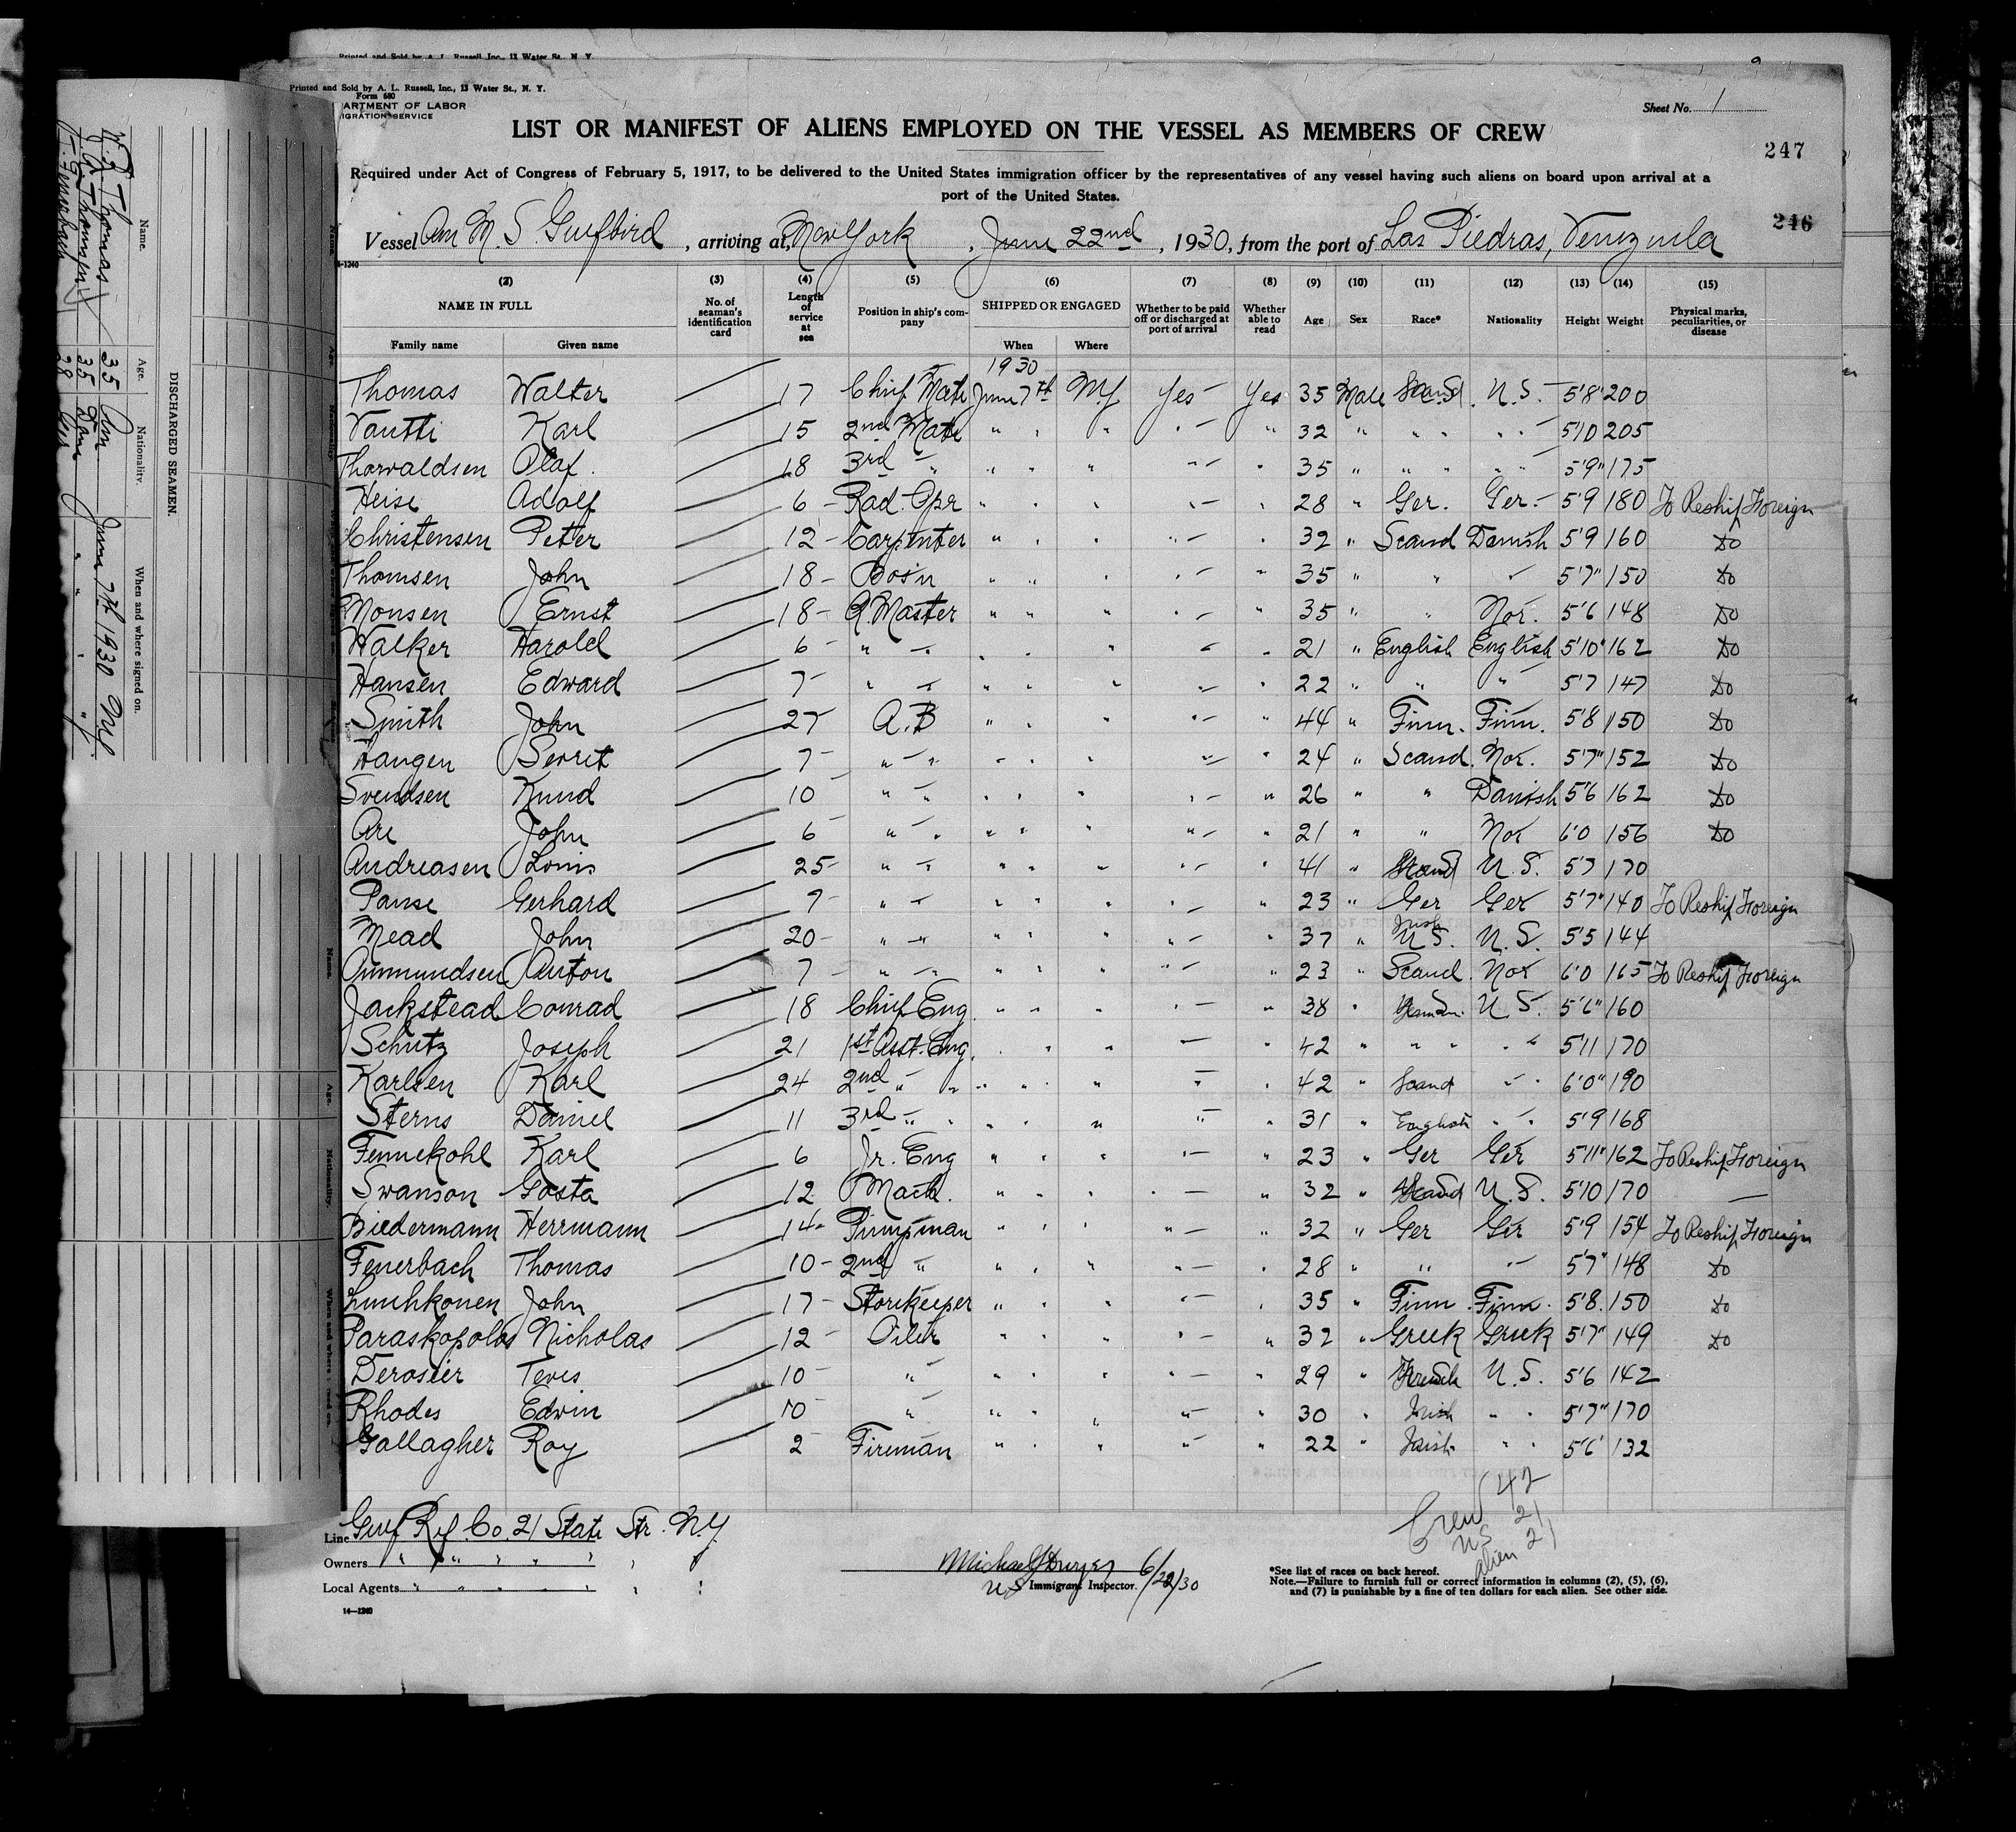 Printed and Sold by A. L. Russell, Inc., 13 Water St., N. Y.
Printed and Sold by A. L. Russell, Inc., 13 Water St., N. Y.
Form 680
ARTMENT OF LABOR
IGRATION SERVICE
Sheet No. 1
LIST OR MANIFEST OF ALIENS EMPLOYED ON THE VESSEL AS MEMBERS OF CREW
247
Required under Act of Congress of February 5, 1917, to be delivered to the United States immigration officer by the representatives of any vessel having such aliens on board upon arrival at a
port of the United States.
246
Vessel Am M. S. Gulfbird, arriving at New York, June 22nd, 1930, from the port of Las Piedras, Venezuela
(2) (3) (4) (5) (6) (7) (8) (9) (10) (11) (12) (13) (14) (15)
NAME IN FULL No. of seaman's identification card Length of service at sea Position in ship's company SHIPPED OR ENGAGED Whether to be paid off or discharged at port of arrival Whether able to read Age Sex Race* Nationality Height Weight Physical marks, peculiarities, or disease
Family name Given name When Where
1930
Thomas Walter 17 Chief Mate June 7th NY Yes Yes 35 Male Scand U.S. 5'8" 200
Vautti Karl 15 2nd Mate " " " " " 32 " " " 5'10 205
Thorwaldsen Olaf. 18 3rd " " " " " " 35 " " " 5'9" 175
Heise Adolf 6 Rad. Opr " " " " " 28 " Ger. Ger. 5'9 180 To Reship Foreign
Christensen Peter 12 Carpenter " " " " " 32 " Scand Danish 5'9 160 Do
Thomsen John 18 Bos'n " " " " " 35 " " " 5'7" 150 Do
Monsen Ernst 18 Q. Master " " " " " 35 " " Nor. 5'6 148 Do
Walker Harold 6 " " " " " " 21 " English English 5'10" 162 Do
Hansen Edward 7 " " " " " " 22 " " " 5'7 147 Do
Smith John 27 A.B " " " " " 44 " Finn. Finn. 5'8 150 Do
Wangen Serrit 7 " " " " " " 24 " Scand. Nor. 5'7" 152 Do
Svendsen Knud 10 " " " " " " 26 " " Danish 5'6 162 Do
Are John 6 " " " " " " 21 " " Nor 6'0 156 Do
Andreasen Louis 25 " " " " " " 41 " Scand U.S. 5'7 170
Panse Gerhard 7 " " " " " " 23 " Ger Ger 5'7" 140 To Reship Foreign
Mead John 20 " " " " " " 37 " Irish U.S. U.S. 5'5 144
Anton 7 " " " " " " 23 " Scand. Nor 6'0 165 To Reship Foreign
Jackstead Conrad 18 Chief Eng. " " " " " 38 " U.S. 5'6" 160
Schutz Joseph 21 1st Asst. Eng. " " " " " 42 " " " 5'11 170
Karlsen Karl 24 2nd " " " " " " " 42 " Scand " 6'0" 190
Sterns Daniel 11 3rd " " " " " " " 31 " English " 5'9 168
Fennekohl Karl 6 Jr. Eng " " " " " 23 " Ger Ger 5'11" 162 To Reship Foreign
Swanson Gosta 12 Mach. " " " " " 32 " Scand U.S. 5'10 170 —
Biedermann Herrmann 14 Pumpman " " " " " 32 " Ger Ger 5'9 154 To Reship Foreign
Feuerbach Thomas 10 2nd " " " " " " 28 " " " 5'7" 148 Do
John 17 Storekeeper " " " " " 35 " Finn. Finn. 5'8. 150 Do
Paraskopolos Nicholas 12 Oiler " " " " " 32 " Greek Greek 5'7" 149 Do
Derosier Teves 10 " " " " " " 29 " French U.S. 5'6 142
Rhodes Edwin 10 " " " " " " 30 " Irish " 5'7" 170
Gallagher Roy 2 Fireman " " " " " 22 " Irish " 5'6 132
Crew 42
US 21
alien 21
Line Gulf Ref. Co. 21 State Str. N.Y.
Owners " " " " " " "
Local Agents " " " " " " "
Michael J Dwyer 6/22/30
US Immigrant Inspector.
*See list of races on back hereof.
Note.—Failure to furnish full or correct information in columns (2), (5), (6),
and (7) is punishable by a fine of ten dollars for each alien. See other side.
14—1240
DISCHARGED SEAMEN.
Name. Age. Nationality. When and where signed on.
W. Thomas 35 Am June 7th 1930 NY
J. Thomsen 35 Dan " " "
T. Feuerbach 28 Ger " " "